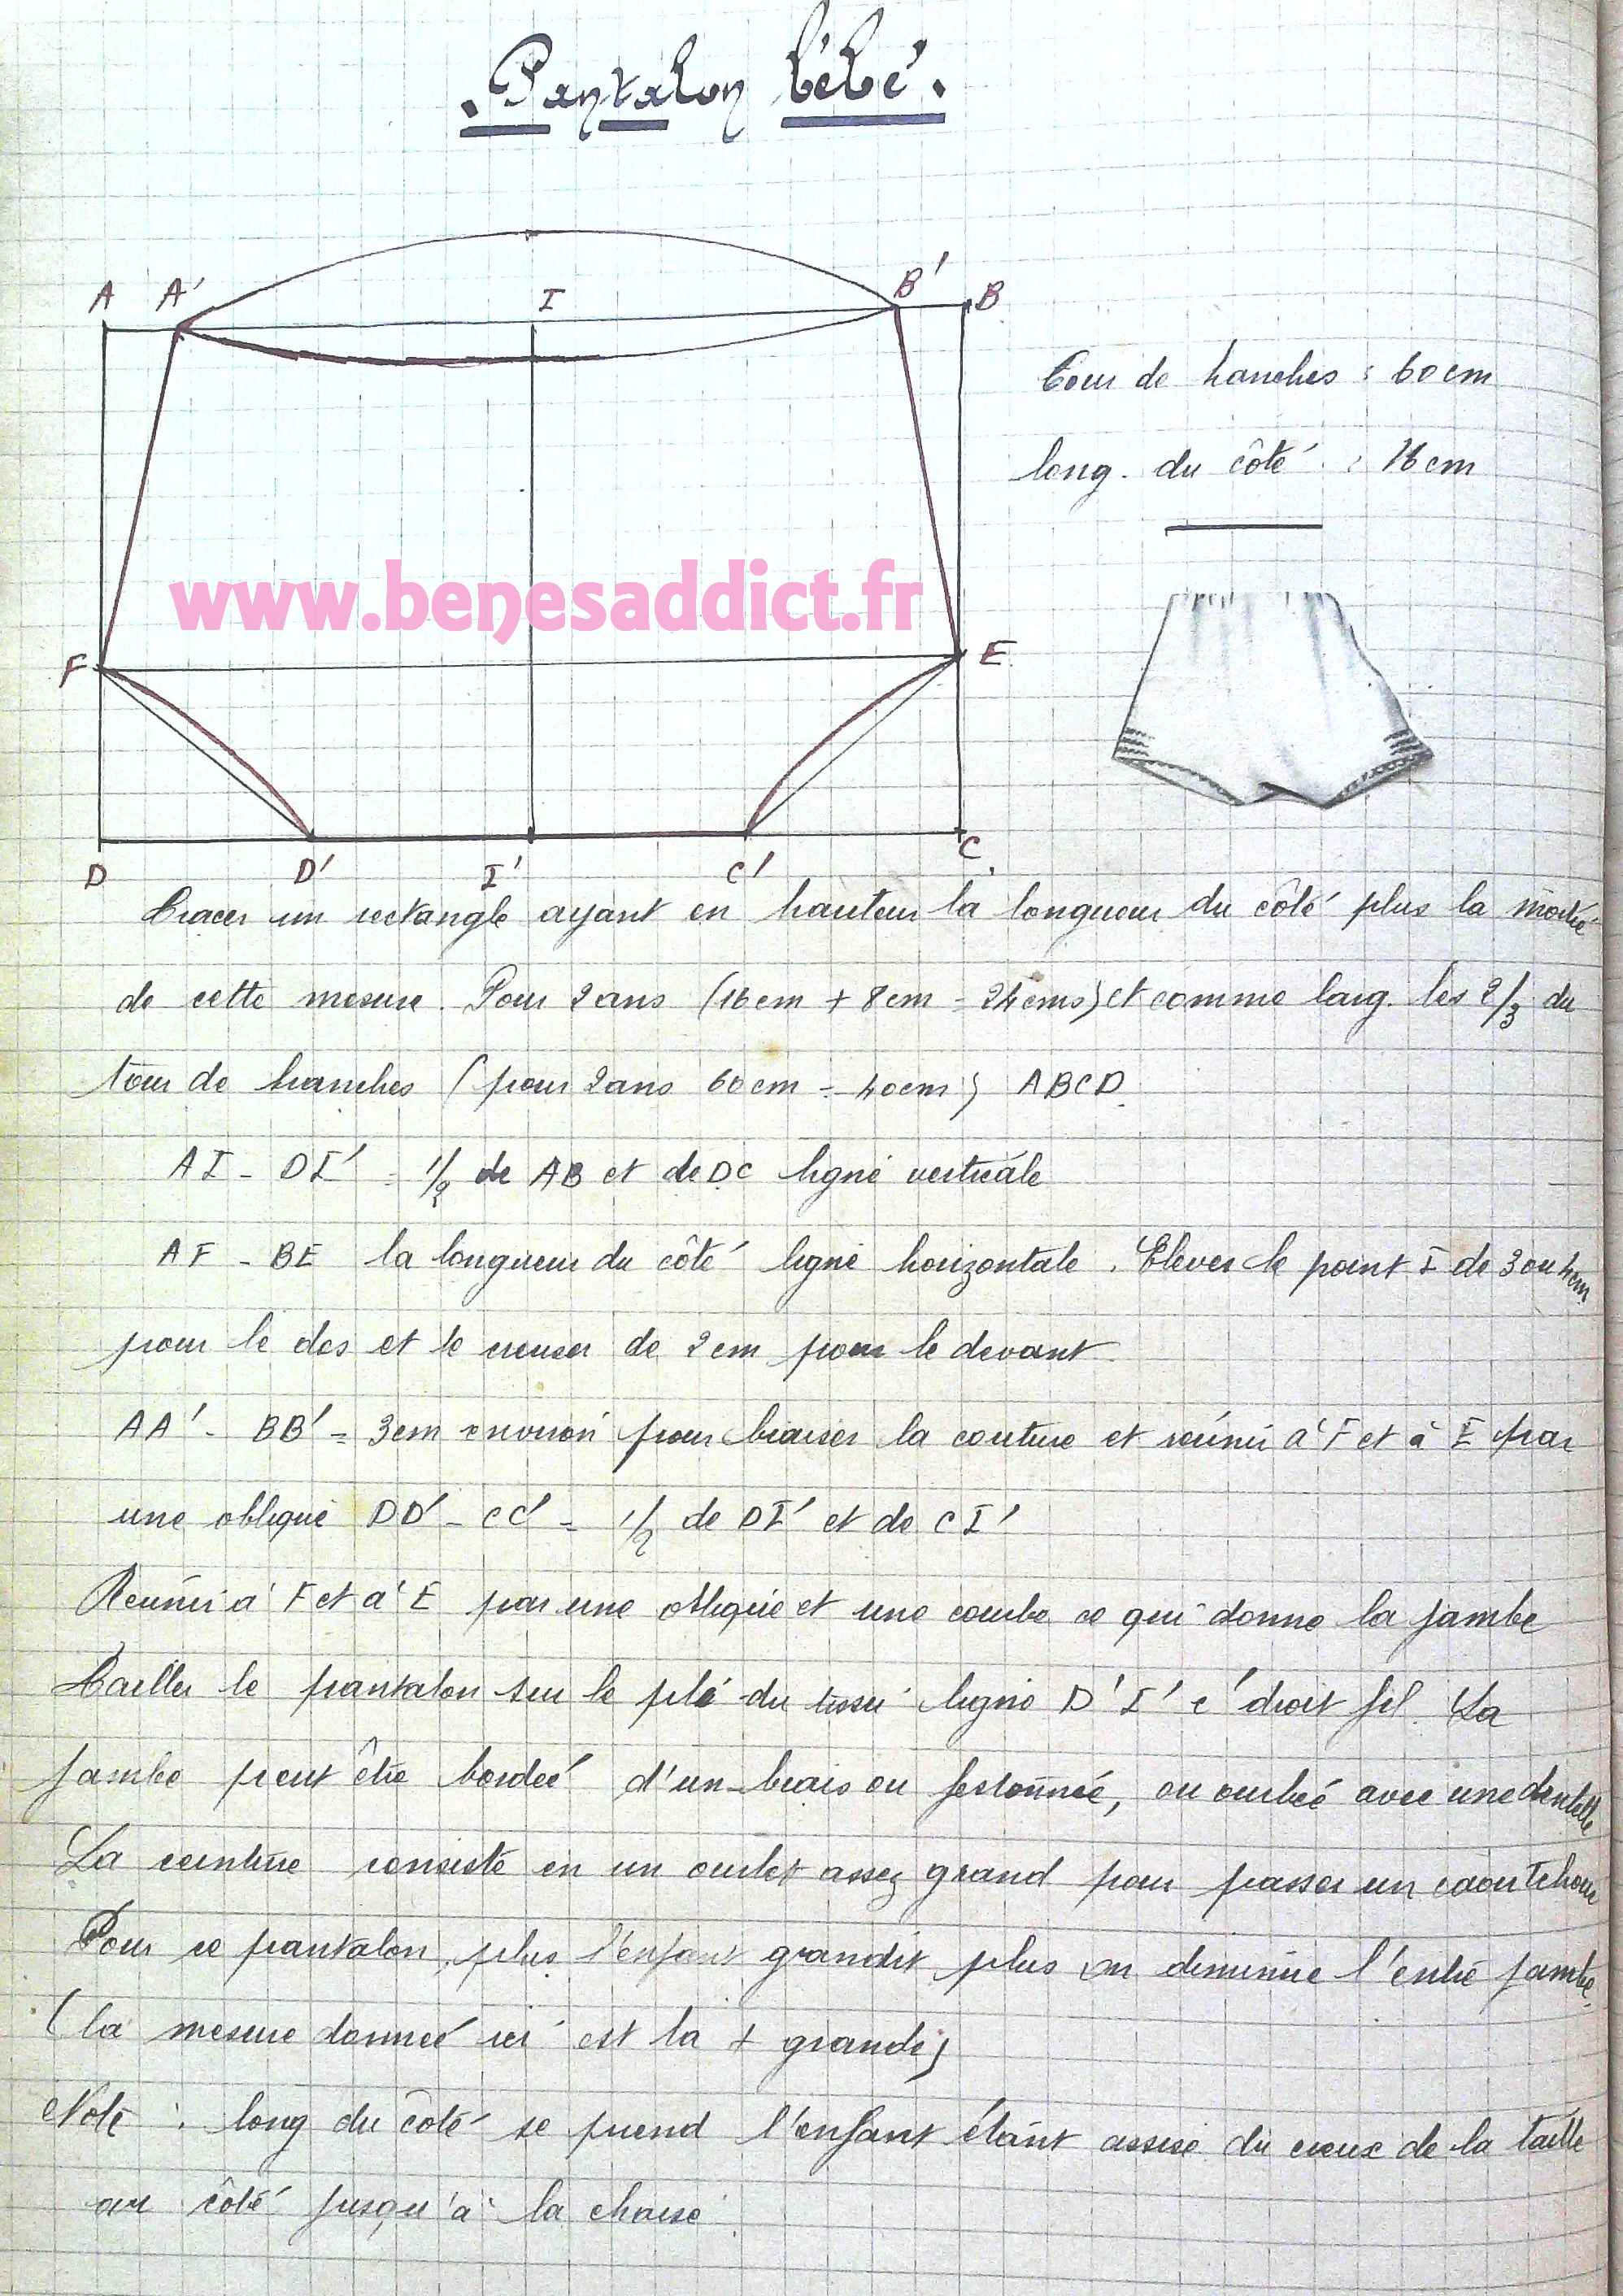 . Pantalon bébé .
A A' I B' B
Tour de hanches : 60 cm
long. du côté : 16 cm
www.benesaddict.fr
F E
D D' I' C' C
Tracer un rectangle ayant en hauteur la longueur du côté plus la moitié
de cette mesure. Pour 2 ans (16 cm + 8 cm = 24 cms) et comme larg. les 2/3 du
tour de hanches (pour 2 ans 60 cm = 40 cm) ABCD.
AI - DI' = 1/2 de AB et de DC ligne verticale
AF - BE la longueur du côté ligne horizontale. Elever le point I de 3 ou 4 cm
pour le dos et le creuser de 2 cm pour le devant.
AA' - BB' = 3 cm environ pour biaiser la couture et réunir à F et à E par
une oblique DD' - CC' = 1/2 de DI' et de CI'
Réunir à F et à E par une oblique et une courbe ce qui donne la jambe
Tailler le pantalon sur le plé du tissu ligne D' I' C' droit fil. La
jambe peut être bordée d'un biais ou festonnée, ou ourleé avec une dentelle
La ceinture consiste en un ourlet assez grand pour passer un caoutchouc
Pour ce pantalon, plus l'enfant grandit plus on diminue l'entre jambe.
(la mesure donnée ici est la + grande)
Note : long du côté se prend l'enfant étant assise du creux de la taille
au côté jusqu'à la chaise.